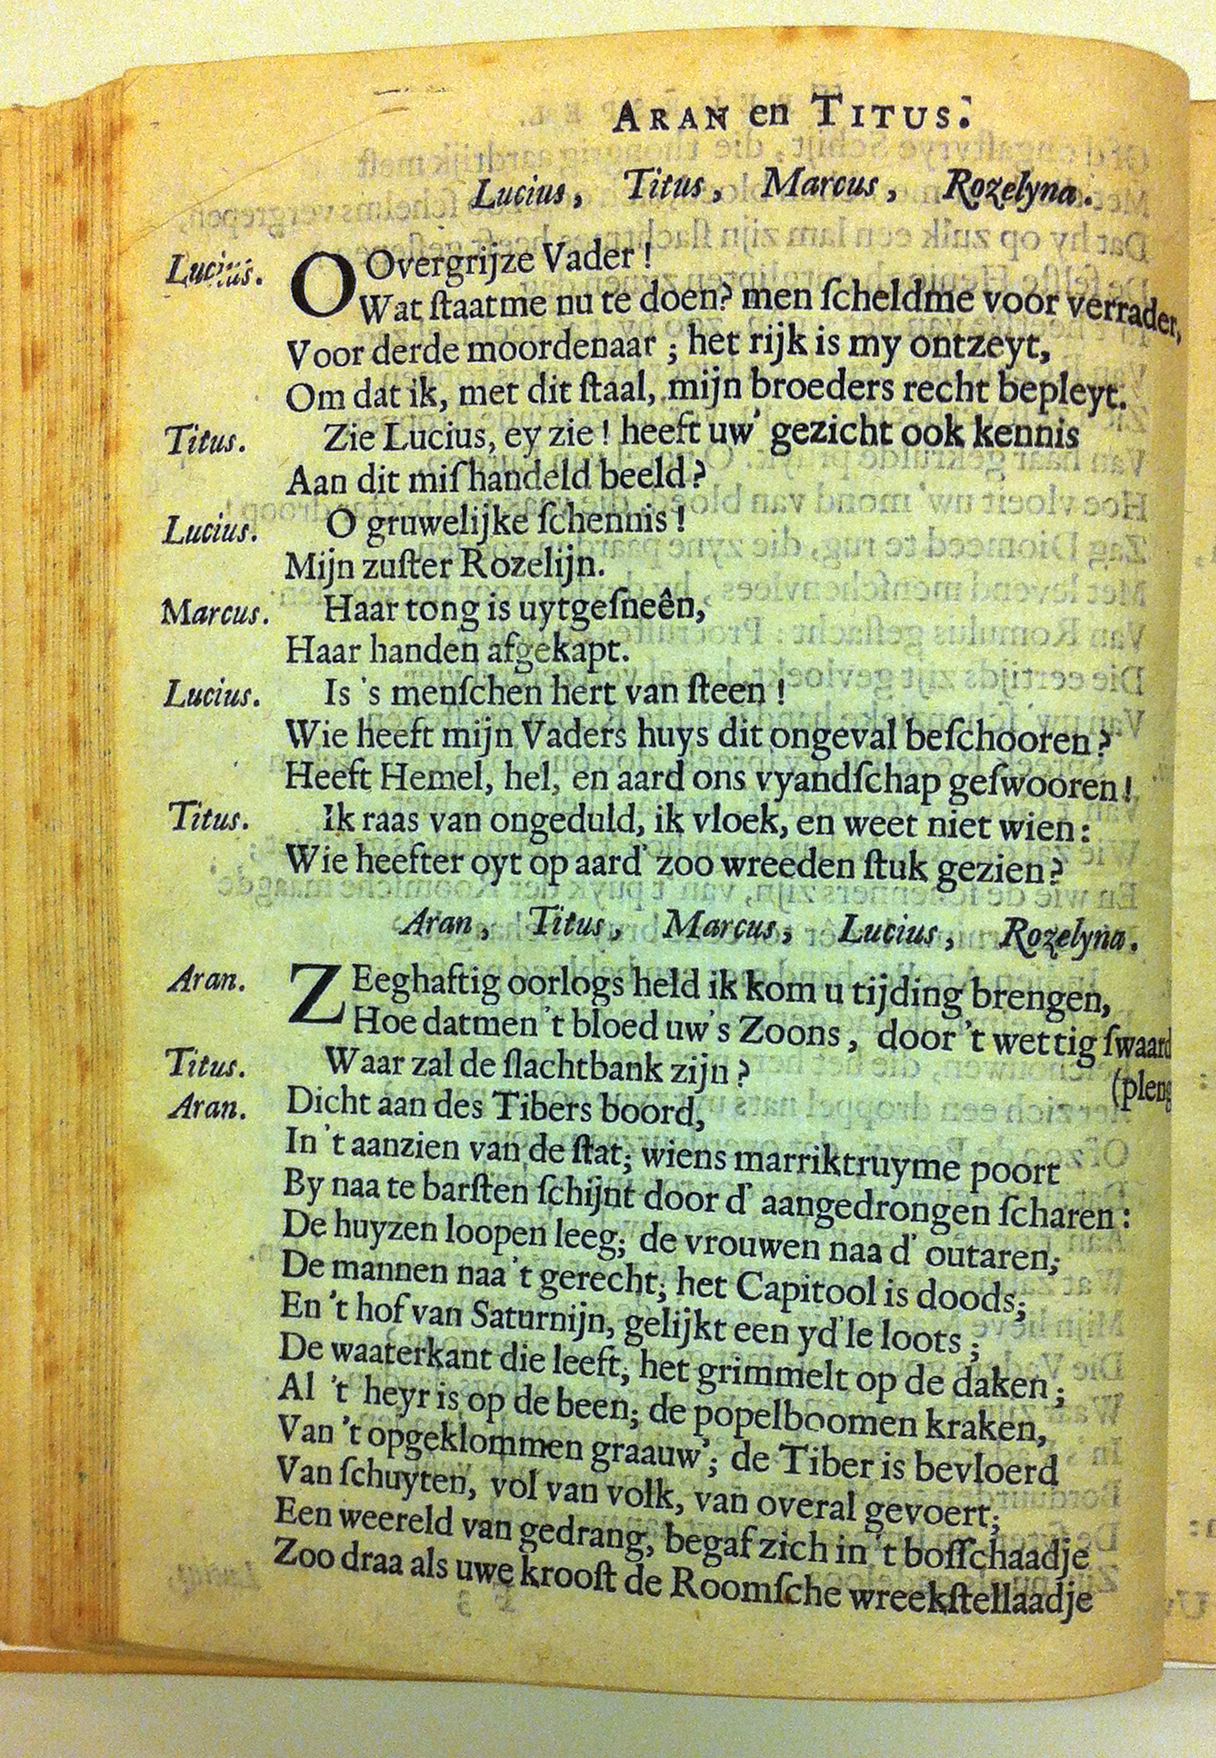 ARAN en TITUS.
Lucius, Titus, Marcus, Rozelyna.
Lucius. OOvergrijze Vader!
Wat ſtaatme nu te doen? men ſcheldme voor verrader,
Voor derde moordenaar; het rijk is my ontzeyt,
Om dat ik, met dit ſtaal, mijn broeders recht bepleyt.
Titus. Zie Lucius, ey zie! heeft uw' gezicht ook kennis
Aan dit miſhandeld beeld?
Lucius. O gruwelijke ſchennis!
Mijn zuſter Rozelijn.
Marcus. Haar tong is uytgeſneên,
Haar handen afgekapt.
Lucius. Is 's menſchen hert van ſteen!
Wie heeft mijn Vaders huys dit ongeval beſchooren?
Heeft Hemel, hel, en aard ons vyandſchap geſwooren!
Titus. Ik raas van ongeduld, ik vloek, en weet niet wien:
Wie heefter oyt op aard' zoo wreeden ſtuk gezien?
Aran, Titus, Marcus, Lucius, Rozelyna.
Aran. ZEeghaftig oorlogs held ik kom u tijding brengen,
Hoe datmen 't bloed uw's Zoons, door 't wettig ſwaard
Titus. Waar zal de ſlachtbank zijn? (pleng
Aran. Dicht aan des Tibers boord,
In 't aanzien van de ſtat; wiens marriktruyme poort
By naa te barſten ſchijnt door d' aangedrongen ſcharen:
De huyzen loopen leeg; de vrouwen naa d' outaren;
De mannen naa 't gerecht; het Capitool is doods;
En 't hof van Saturnijn, gelijkt een yd'le loots;
De waaterkant die leeft; het grimmelt op de daken;
Al 't heyr is op de been; de popelboomen kraken,
Van 't opgeklommen graauw'; de Tiber is bevloerd
Van ſchuyten, vol van volk, van overal gevoert;
Een weereld van gedrang, begaf zich in 't boſſchaadje
Zoo draa als uwe krooſt de Roomſche wreekſtellaadje